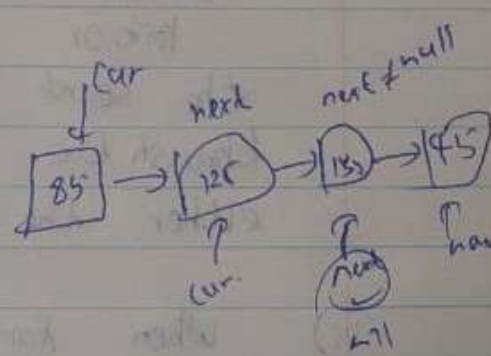 cur
next
next ≠ null
85 → 125 → → 45
cur.
next
null